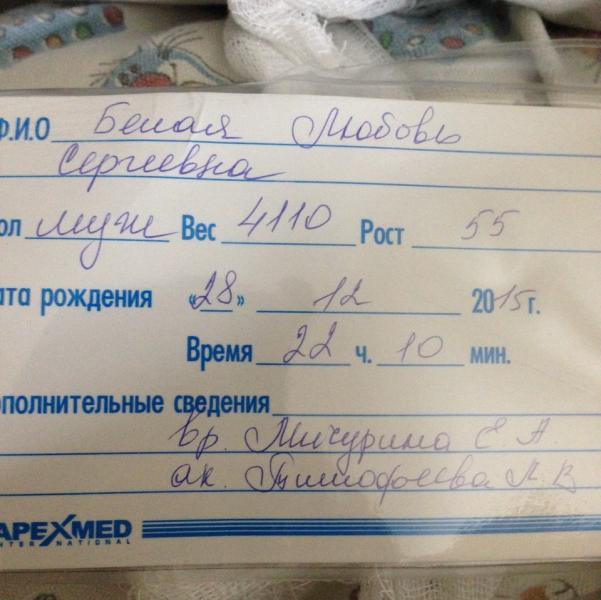 Ф.И.О Белая Любовь
Сергеевна
ол муж Вес 4110 Рост 55
ата рождения «28» 12 2015 г.
Время 22 ч. 10 мин.
ополнительные сведения
вр. Мичурина Е. А.
ак. Тимофеева Л. В
APEXMED
INTERNATIONAL